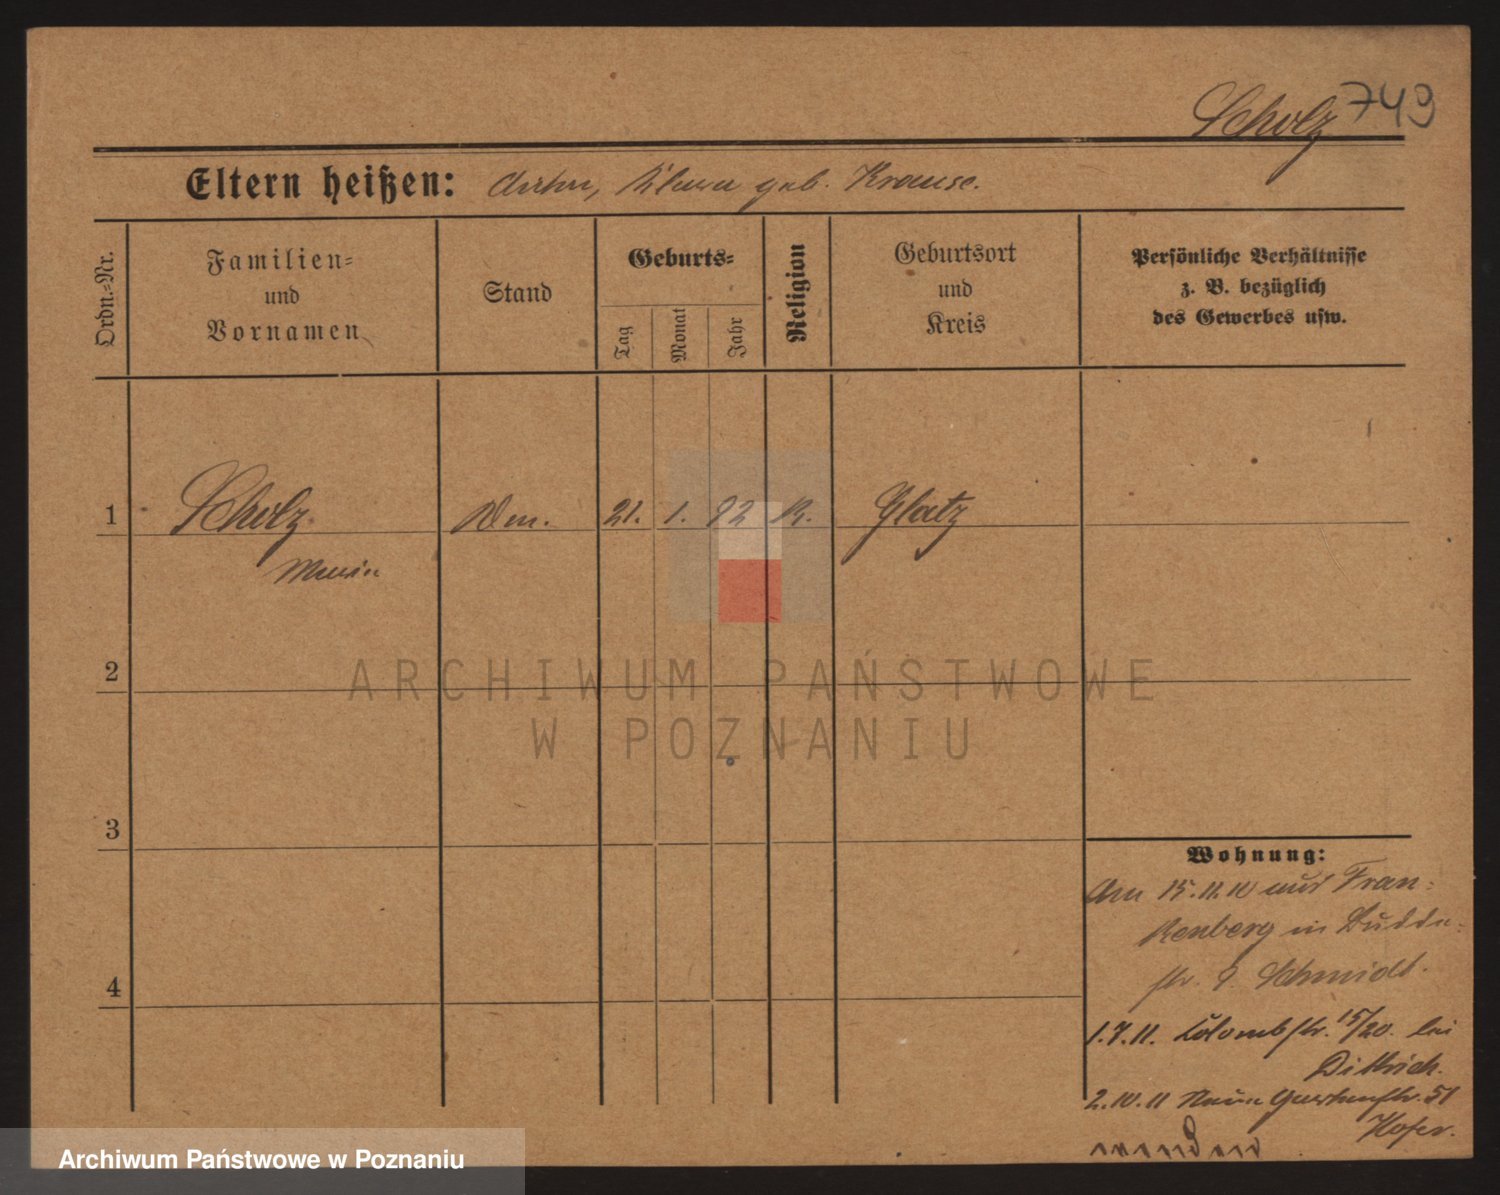 Scholz 749
Eltern heißen: geb. Krause.
Ordn.=Nr.
Familien=
und
Vornamen
Stand
Geburts=
Tag
Monat
Jahr
Religion
Geburtsort
und
Kreis
Persönliche Verhältnisse
z. B. bezüglich
des Gewerbes usw.
1 Scholz 21. 1. 92 K. Glatz
2
3
4
Wohnung:
Am 15.11.10 aus Fran=
kenberg in
str. 9. Schmidt.
1.7.11. Colombstr. 15/20. bei
Dittrich.
2.10.11 Neue Gartenstr. 51
Hofer.
ARCHIWUM PAŃSTWOWE
W POZNANIU
Archiwum Państwowe w Poznaniu